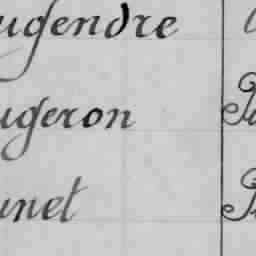 ugendre
ugeron
unet